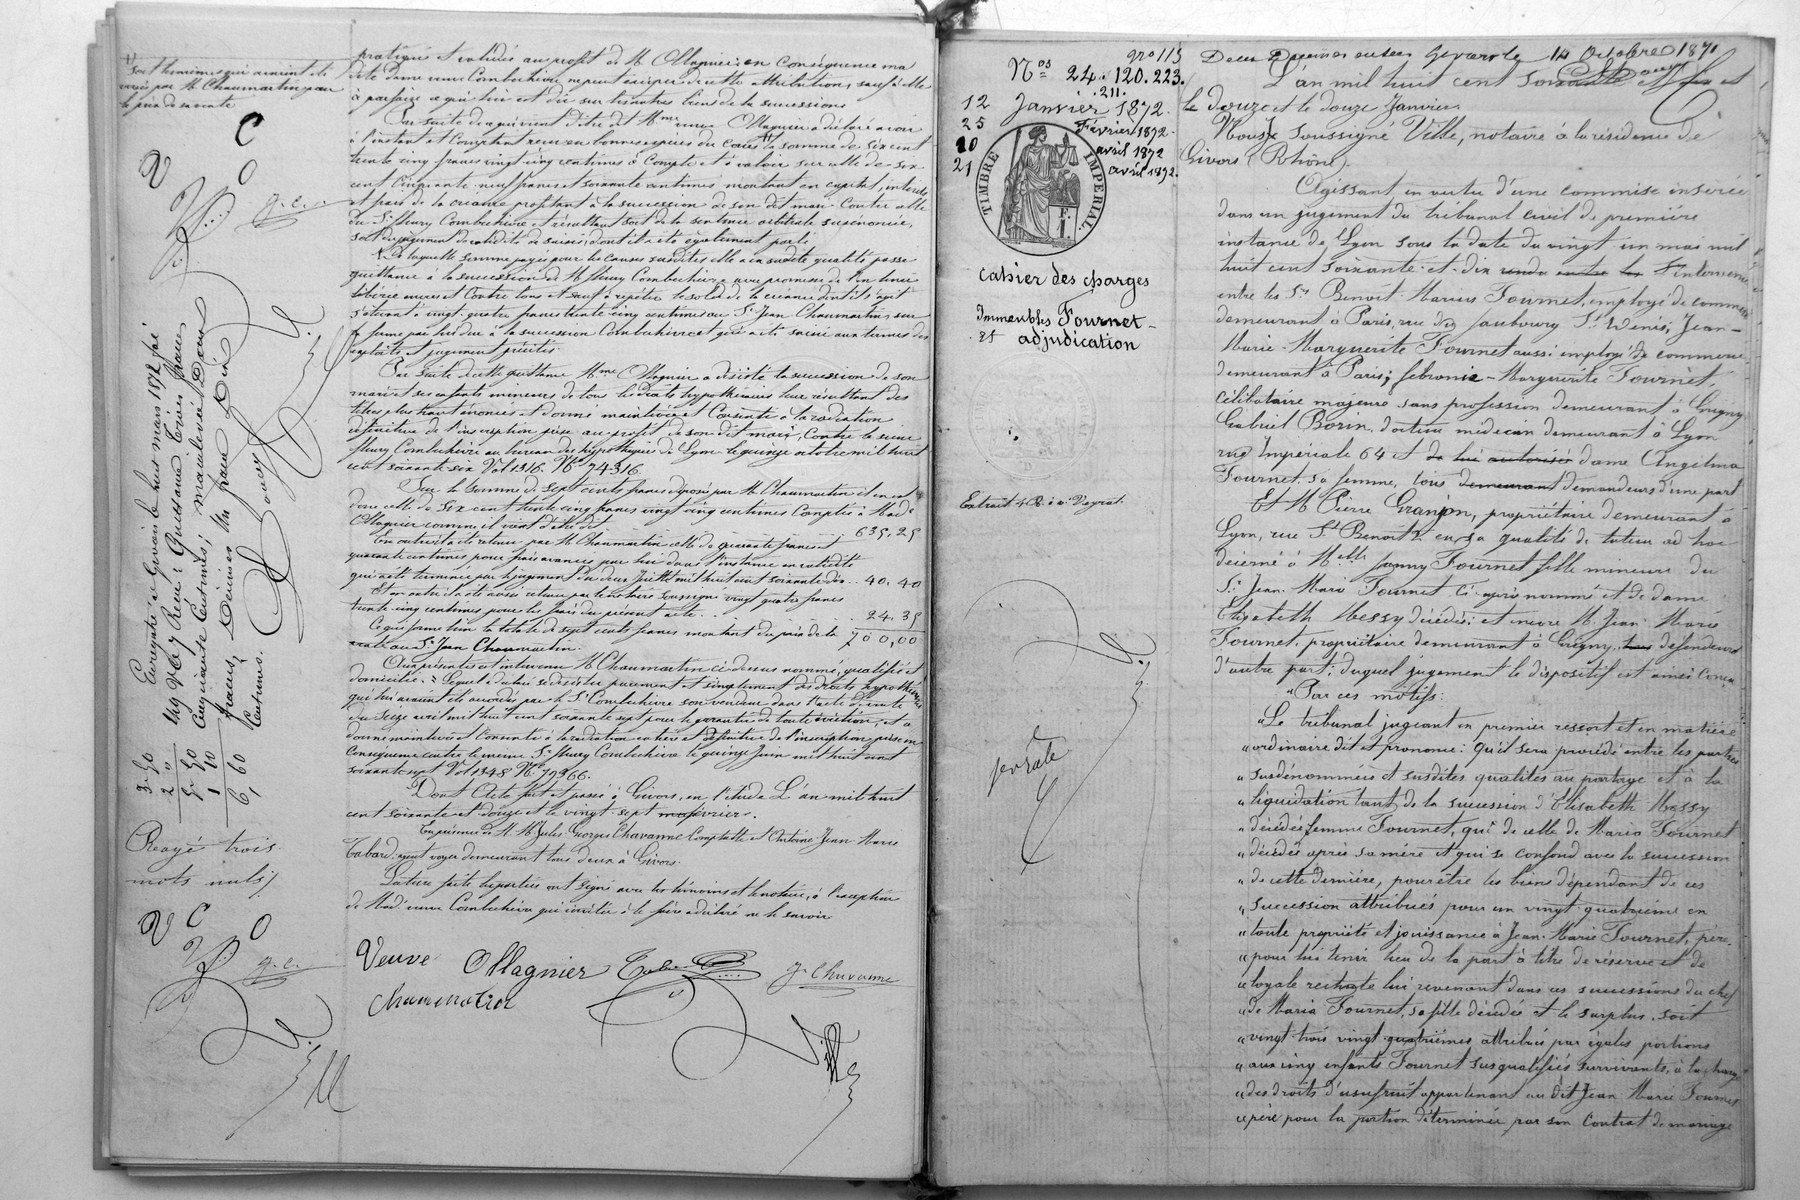 sont termes qui avaient été
versés par M. Chaumartin pour
le prix de la vente
pratiquée et validée au profit de M. Ollagnier: en Conséquence ma
dite Dame veuve Combechère ne peut exiger de cette attribution, sauf à elle
à parfaire
sur les autres biens de la succession
Par suite de ce qui vient d'être dit Mme veuve Ollagnier a déclaré avoir
à l'instant et Comptant reçu en bonnes espèces du Cours la somme de six cent
trente cinq francs vingt cinq centimes à Compte et à valoir sur celle de six
cent cinquante neuf francs et soixante centimes montant en capital, intérêts
et frais de la créance profitant à la succession de son dit mari Contre celle
du Sr fleury Combechère et résultant soit de la sentence arbitrale susénoncée,
soit du jugement de validité de saisie, dont il a été également parlé.
De laquelle somme payée pour les causes susdites elle a en sa dite qualité passé
quittance à la succession de M. fleury Combechère avec promesse de l'en tenir
libérée envers et Contre tous et sauf à répéter le solde de la créance dont il s'agit
s'élevant à vingt-quatre francs trente cinq centimes au Sr Jean Chaumartin, sur
la somme par lui due à la succession Combechère et qui a été saisie aux termes des
exploits et jugement précités.
Par suite de cette quittance Mme Ollagnier a désisté la succession de son
mari et ses enfants mineurs de tous les droits hypothécaires leur résultant des
titres plus haut énoncés et donné mainlevée et Consenti à la radiation
définitive de l'inscription prise au profit de son dit mari, Contre le sieur
fleury Combechère au bureau des hypothèques de Lyon le quinze octobre mil huit
cent soixante six Vol 1316 No 74316.
Sur la somme de sept cents francs déposée par M. Chaumartin il en est
donc celle de six cent trente cinq francs vingt cinq centimes Comptée à Made
Ollagnier comme il vient d'être dit 635,25
En outre il a été retenu par M. Chaumartin celle de quarante francs et
quarante centimes pour frais avancés par lui dans l'instance en validité
qui a été terminée par le jugement du deux Juillet mil huit cent soixante dix .. 40,40
Et en outre il a été aussi retenu par le notaire soussigné vingt quatre francs
trente cinq centimes pour les frais du présent acte . . . 24,35
Ce qui forme bien le total de sept cents francs montant du prix de la 700,00
vente au Sr Jean Chaumartin.
Aux présentes est intervenu M. Chaumartin ci-dessus nommé, qualifié et
domicilié. = Lequel a déclaré se désister purement et simplement des droits hypothécaires
qui lui avaient été accordés par le Sr Combechère son vendeur dans l'acte de vente
du seize avril mil huit cent soixante sept pour le garantir de toute éviction, et a
donné mainlevée et Consenti à la radiation entière et définitive de l'inscription prise en
Conséquence contre le même Sr fleury Combechère le quinze Juin mil huit cent
soixante sept Vol 1348 No 79366.
Dont Acte fait et passé à Givors, en l'étude L'an mil huit
cent soixante et douze et le vingt-sept février.
En présence de M M. Jules Georges Chavanne Comptable et Antoine Jean Marie
Tabard agent voyer demeurant tous deux à Givors.
Lecture faite les parties ont signé avec les témoins et le notaire, à l'exception
de Made veuve Combechère qui invitée à le faire a déclaré ne le savoir
Veuve Ollagnier
J. Chavanne
Chaumartin
Enregistré à Givors le huit mars 1872 fol
Reçu: Quittance trois francs
Cinquante Centimes; mainlevée Deux
francs, Décimes Un franc Dix
Centimes.
3.50
2 "
5.50
1 10
6,60
Rayé trois
mots nuls
V C O
J. C.
Nos 24. 120. 223.
.211.
12 Janvier 1872.
25 Février 1872
10 avril 1872
21 avril 1872.
TIMBRE IMPERIAL
Cahier des charges
Immeubles Fournet
Et adjudication
14 Octobre 1871
L'an mil huit cent soixante et
le douze et le douze Janvier.
Nous soussigné Ville, notaire à la résidence de
Givors (Rhône).
Agissant en vertu d'une commise insérée
dans un jugement du tribunal civil de première
instance de Lyon sous la date du vingt un mai mil
huit cent soixante-et-dix rendu entre les
entre les Srs Benoit-Marius Fournet, employé de commerce
demeurant à Paris, rue du faubourg St Denis; Jean-
Marie-Marguerite Fournet aussi employé de commerce
demeurant à Paris; fébronie-Marguerite Fournet,
célibataire majeure sans profession demeurant à Grigny
Gabriel Borin, docteur médecin demeurant à Lyon
rue Impériale 64 et de lui autorisée dame Angelina
Fournet, sa femme, tous demeurant demandeurs d'une part
Et M. Pierre Granjon, propriétaire demeurant à
Lyon, rue St Benoit 2 en sa qualité de tuteur ad hoc
décerné à Melle fanny Fournet fille mineure du
Sr Jean-Marie Fournet ci-après nommé et de dame
Elisabeth Messy décédée; et encore M. Jean-Marie
Fournet, propriétaire demeurant à Grigny, tous défendeurs
d'autre part; duquel jugement le dispositif est ainsi conçu
"Par ces motifs:
"Le tribunal jugeant en premier ressort et en matière
"ordinaire dit et prononce: qu'il sera procédé entre les parties
"susdénommées et susdites qualités au partage et à la
"liquidation tant de la succession d'Elisabeth Messy
"décédée femme Fournet, que de celle de Maria Fournet
"décédée après sa mère et qui se confond avec la succession
"de cette dernière, pour être les biens dépendant de ces
"succession attribués pour un vingt quatrième en
"toute propriété et jouissance à Jean-Marie Fournet, père
"pour lui tenir lieu de la part à titre de réserve et de
"légale rechute lui revenant dans ces successions du chef
"de Maria Fournet, sa fille décédée et le surplus, soit
"vingt-trois vingt-quatrièmes attribués par égales portions
"aux cinq enfants Fournet susqualifiés survivants, à la charge
"des droits d'usufruit appartenant au dit Jean-Marie Fournet
"père pour la portion déterminée par son Contrat de mariage